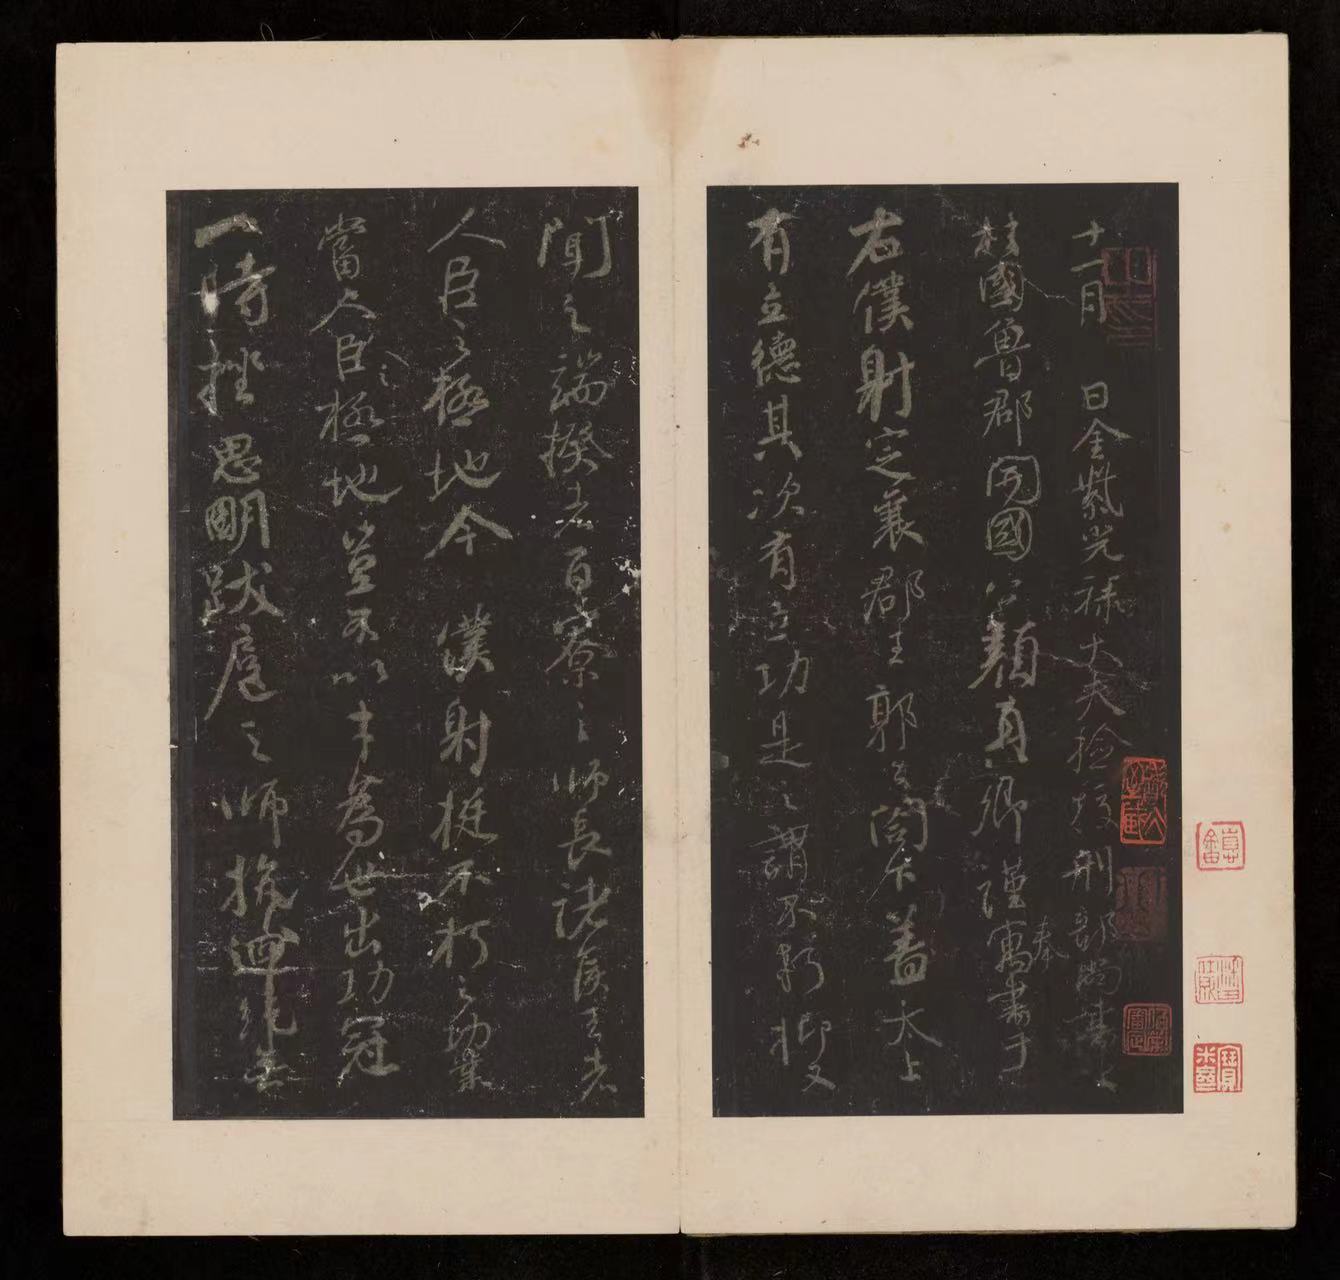 十一月日金紫光祿大夫檢校刑部尚書上
柱國魯郡開國公顏真卿謹奉寓書于
右僕射定襄郡王郭公閤下蓋太上
有立德其次有立功是之謂不朽抑又
聞之端揆者百寮之師長諸侯王者
人臣之極地今僕射挺不朽之功業
當人臣之極地豈不以才為世出功冠
一時挫思明跋扈之師抗迴紇無
寶米室